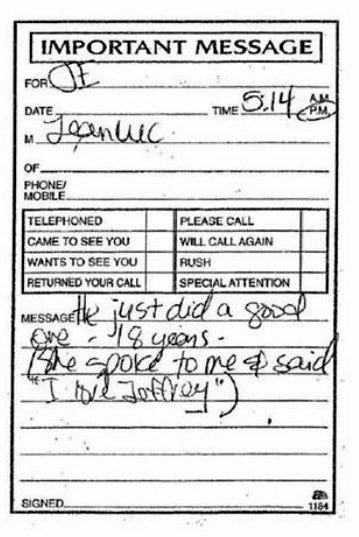 IMPORTANT MESSAGE
FOR JE
DATE TIME 5:14 A.M. P.M.
M Jean Luc
OF
PHONE/
MOBILE
TELEPHONED PLEASE CALL
CAME TO SEE YOU WILL CALL AGAIN
WANTS TO SEE YOU RUSH
RETURNED YOUR CALL SPECIAL ATTENTION
MESSAGE He just did a good
one - 18 years -
(She spoke to me & said
"I love Jeffrey")
SIGNED
1184